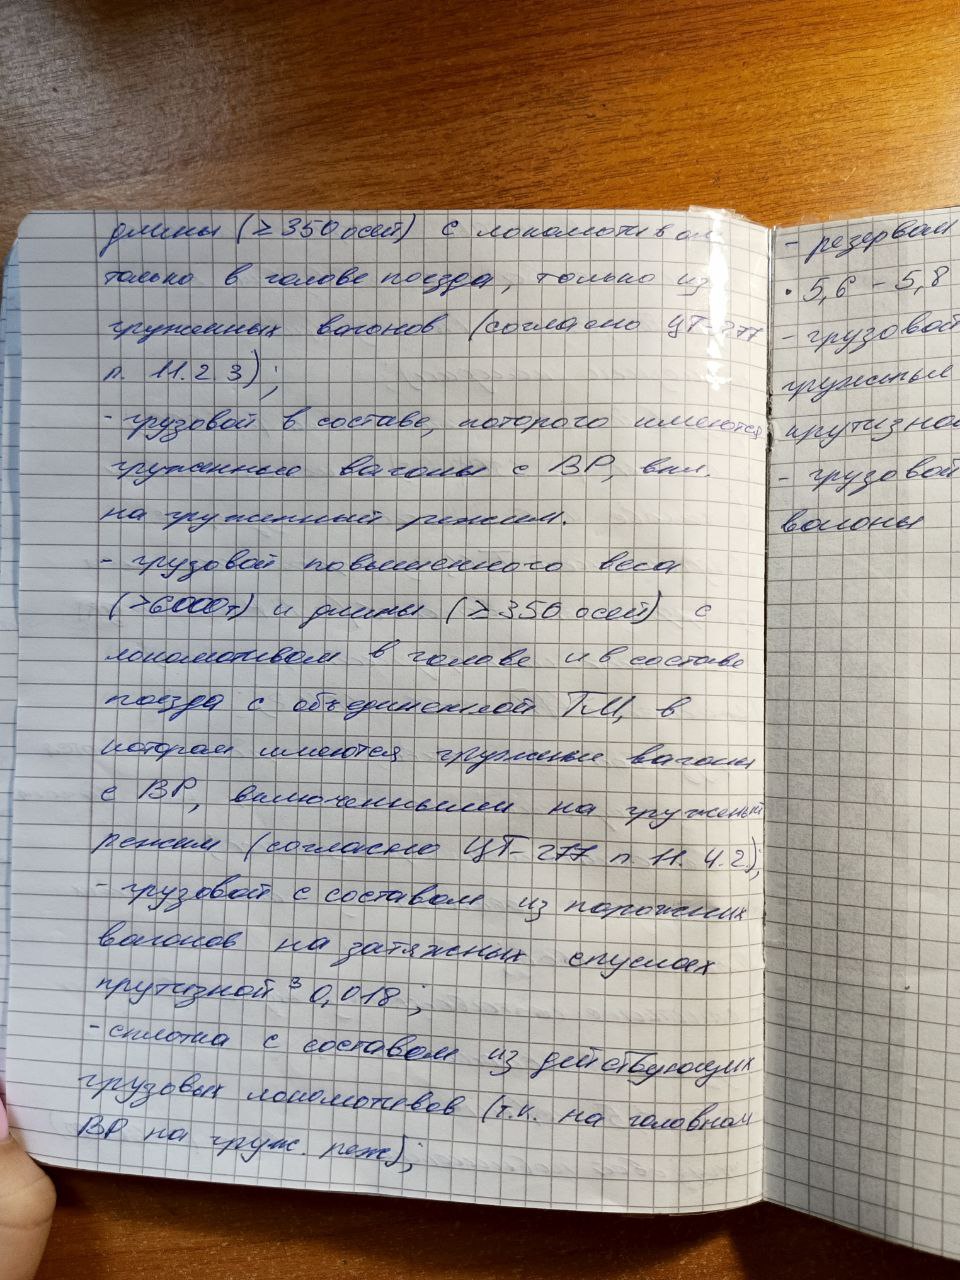 длины (≥350 осей) с локомотивом
только в голове поезда, только из
груженных вагонов (согласно ЦТ-277
п. 11.2.3);
- грузовой в составе, которого имеются
груженные вагоны с ВР, вкл.
на груженный режим.
- грузовой повышенного веса
(>6000т) и длины (≥350 осей) с
локомотивом в голове и в составе
поезда с объединенной ТМ, в
котором имеются груженые вагоны
с ВР, включенными на груженый
режим (согласно ЦТ-277 п. 11.4.2);
- грузовой с составом из порожних
вагонов на затяжных спусках
крутизной ³ 0,018;
- сплотка с составом из действующих
грузовых локомотивов (т.к. на головном
ВР на груж. реж);
- резервом
• 5,6 - 5,8
- грузовой
груженые
крутизной
- грузовой
вагоны